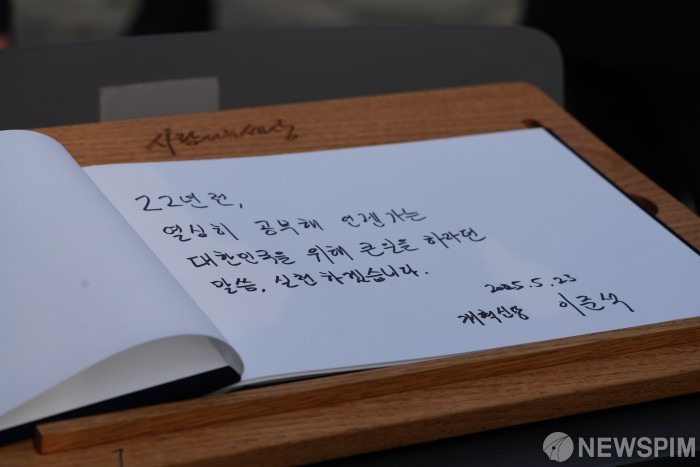 사람사는세상
22년 전,
열심히 공부해 언젠가는
대한민국을 위해 큰일을 하라던
말씀, 실천하겠습니다.
2025.5.23
개혁신당 이준석
NEWSPIM